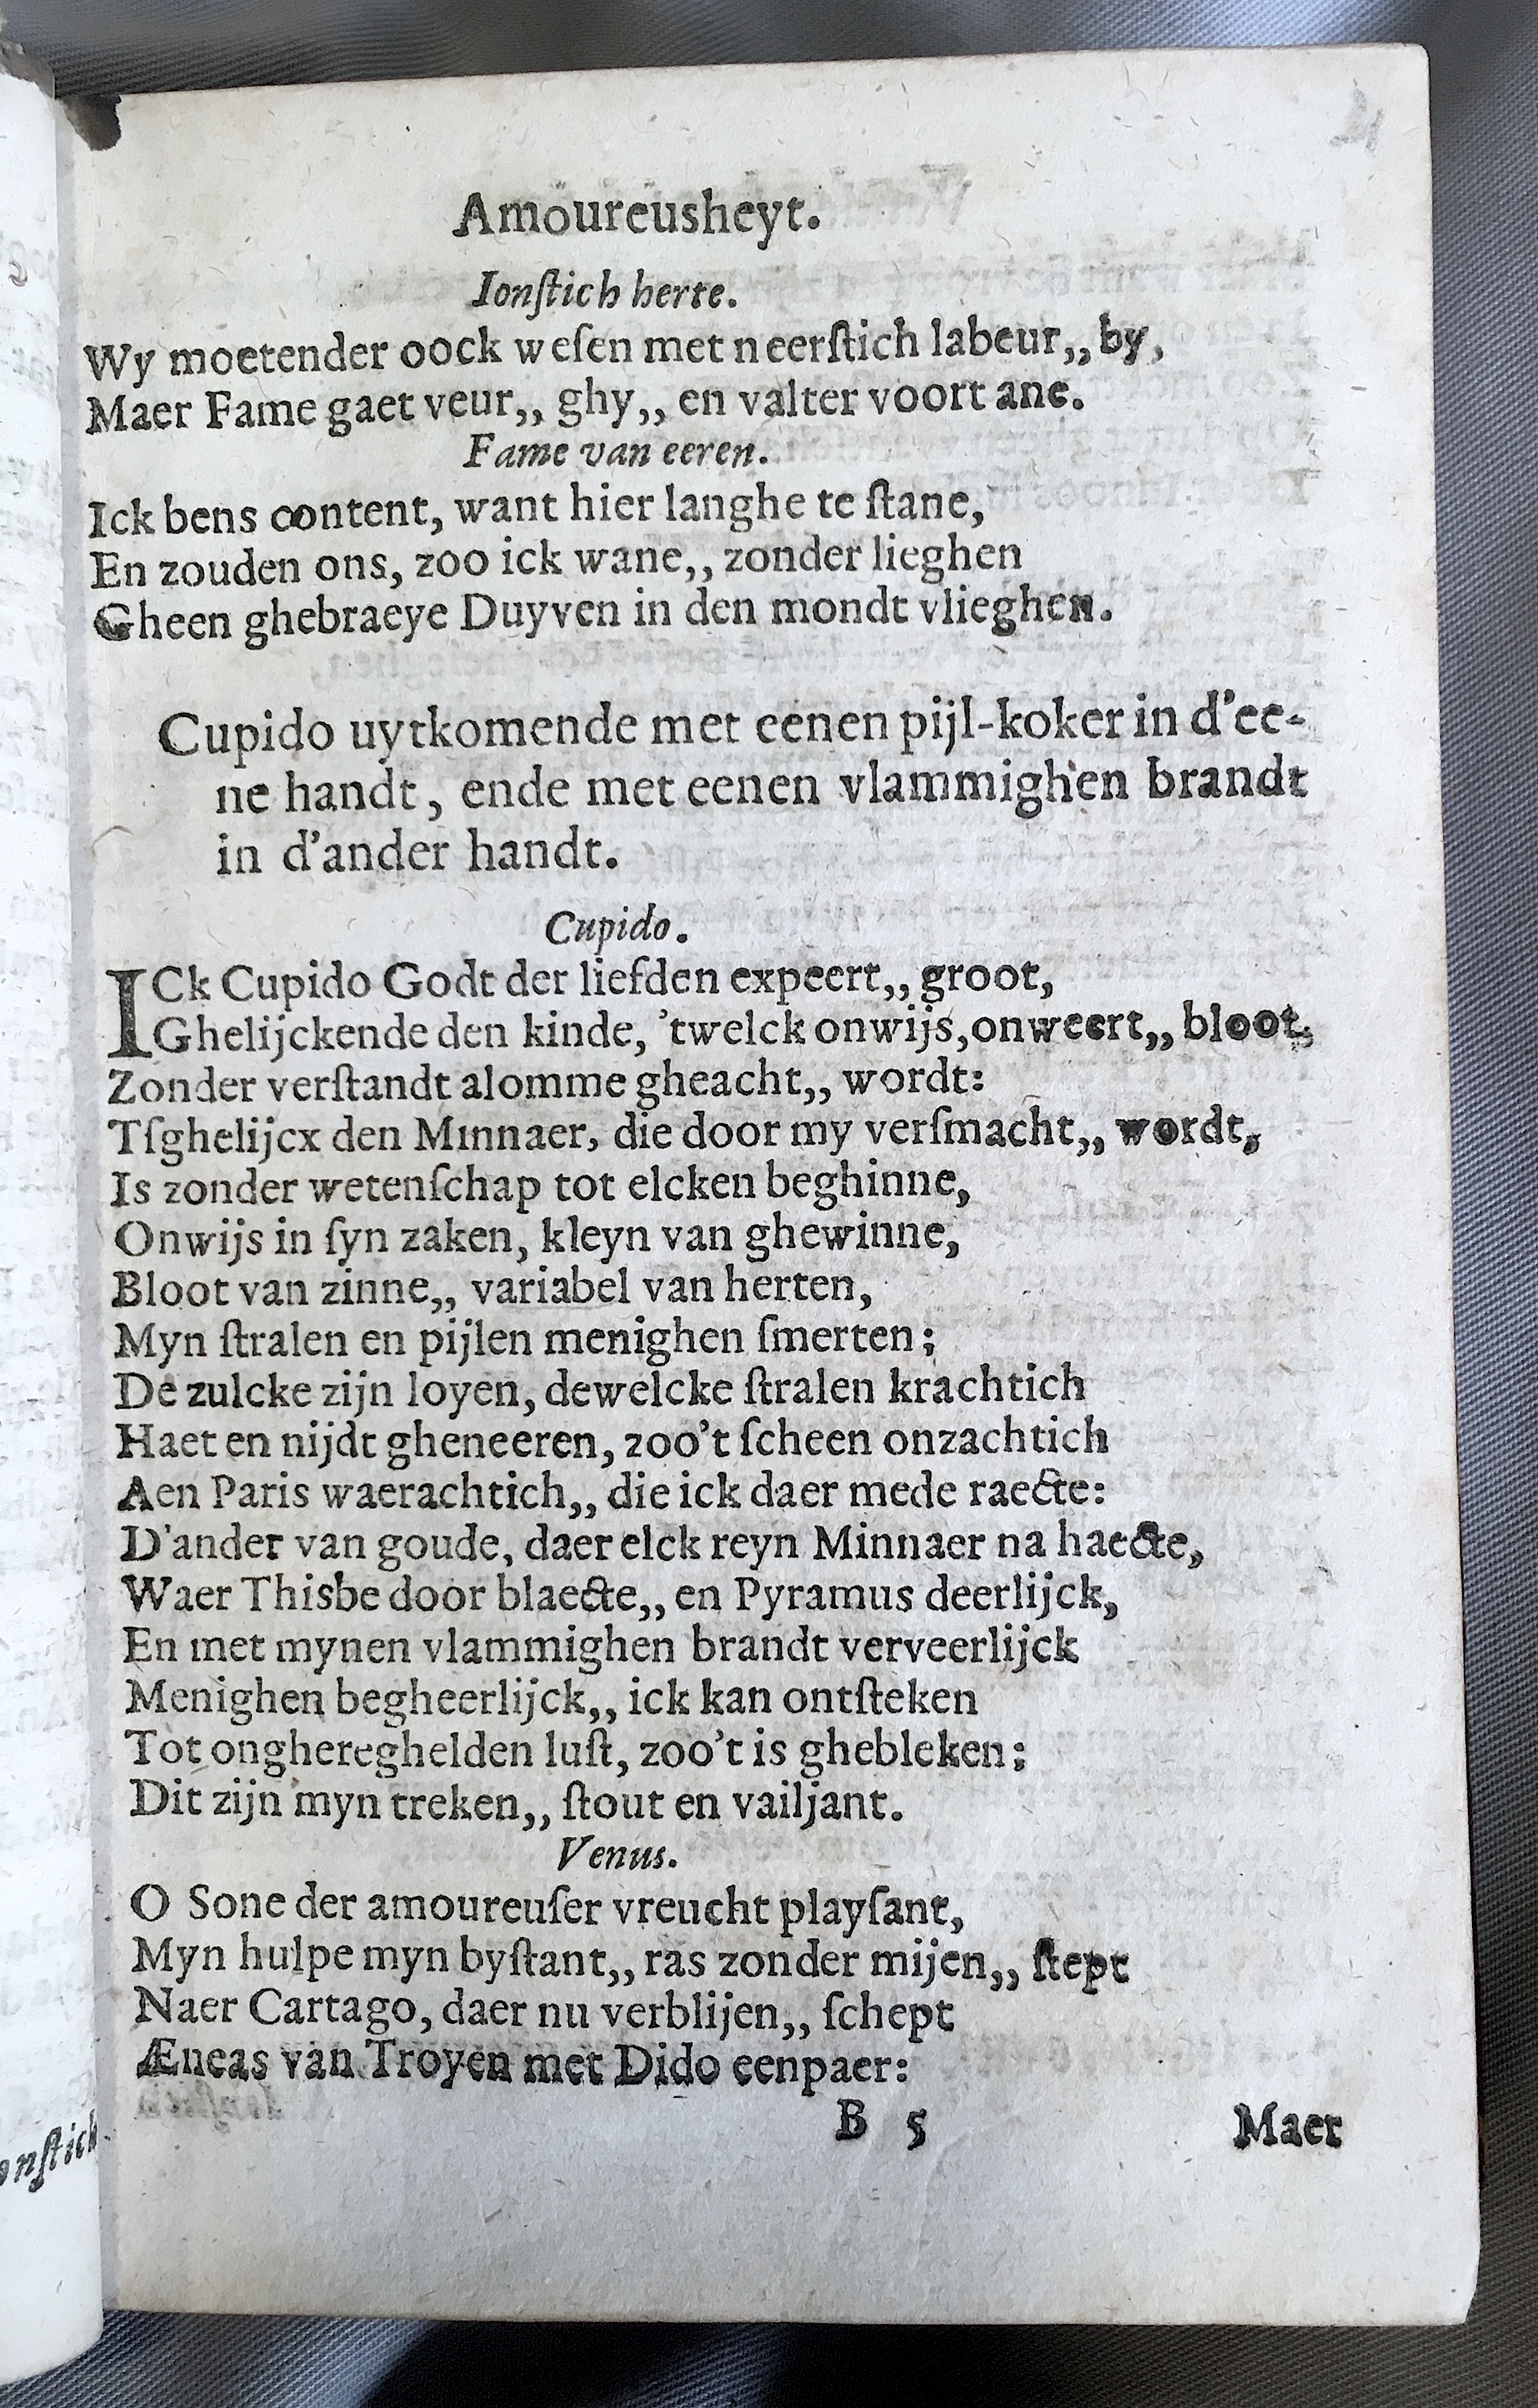 Amoureusheyt.
Ionſtich herte.
Wy moetender oock weſen met neerſtich labeur,, by,
Maer Fame gaet veur,, ghy,, en valter voort ane.
Fame van eeren.
Ick bens content, want hier langhe te ſtane,
En zouden ons, zoo ick wane,, zonder lieghen
Gheen ghebraeye Duyven in den mondt vlieghen.
Cupido uytkomende met eenen pijl-koker in d'ee-
ne handt, ende met eenen vlammighen brandt
in d'ander handt.
Cupido.
ICk Cupido Godt der liefden expeert,, groot,
Ghelijckende den kinde, 'twelck onwijs, onweert,, bloot,
Zonder verſtandt alomme gheacht,, wordt:
Tſghelijcx den Minnaer, die door my verſmacht,, wordt,
Is zonder wetenſchap tot elcken beghinne,
Onwijs in ſyn zaken, kleyn van ghewinne,
Bloot van zinne,, variabel van herten,
Myn ſtralen en pijlen menighen ſmerten;
De zulcke zijn loyen, dewelcke ſtralen krachtich
Haet en nijdt gheneeren, zoo't ſcheen onzachtich
Aen Paris waerachtich,, die ick daer mede raecte:
D'ander van goude, daer elck reyn Minnaer na haecte,
Waer Thisbe door blaecte,, en Pyramus deerlijck,
En met mynen vlammighen brandt verveerlijck
Menighen begheerlijck,, ick kan ontſteken
Tot onghereghelden luſt, zoo't is ghebleken;
Dit zijn myn treken,, ſtout en vailjant.
Venus.
O Sone der amoureuſer vreucht playſant,
Myn hulpe myn byſtant,, ras zonder mijen,, ſtept
Naer Cartago, daer nu verblijen,, ſchept
Æneas van Troyen met Dido eenpaer:
B 5
Maer
onſtich